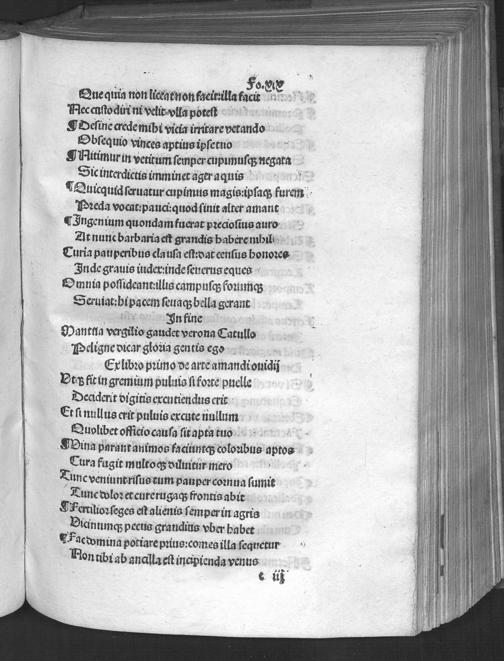 Fo.xix
Que quia non liceat non facit:illa facit
Nec custodiri ni velit vlla potest
¶Desine crede mihi vicia irritare vetando
Obsequio vinces aptius ipse tuo
¶Nitimur in vetitum semper cupimusqȝ negata
Sic interdictis imminet eger aquis
¶Quicquid seruatur cupimus magis:ipsaqȝ furem
Preda vocat:pauci:quod sinit alter amant
¶Ingenium quondam fuerat preciosius auro
At nunc barbaria est grandis habere nihil
Curia pauperibus clausa est:dat census honores
Inde grauis iudex:inde seuerus eques
Omnia possideant:illis campusqȝ forumqȝ
Seruiat:hi pacem seuaqȝ bella gerant
In fine
Mantua vergilio gaudet verona Catullo
Peligne dicar gloria gentis ego
Ex libro primo de arte amandi ouidij
Vtqȝ fit in gremium puluis si forte puelle
Deciderit digitis excutiendus erit
Et si nullus erit puluis excute nullum
Quolibet officio causa sit apta tuo
¶Vina parant animos faciuntqȝ coloribus aptos
Cura fugit multoqȝ diluitur mero
Tunc veniunt risus tum pauper cornua sumit
Tunc dolor et cure rugaqȝ frontis abit
¶Fertilior seges est alienis semper in agris
Vicinumqȝ pecus grandius vber habet
¶Fac domina potiare prius:comes illa sequetur
Non tibi ab ancilla est incipienda venus
c iij